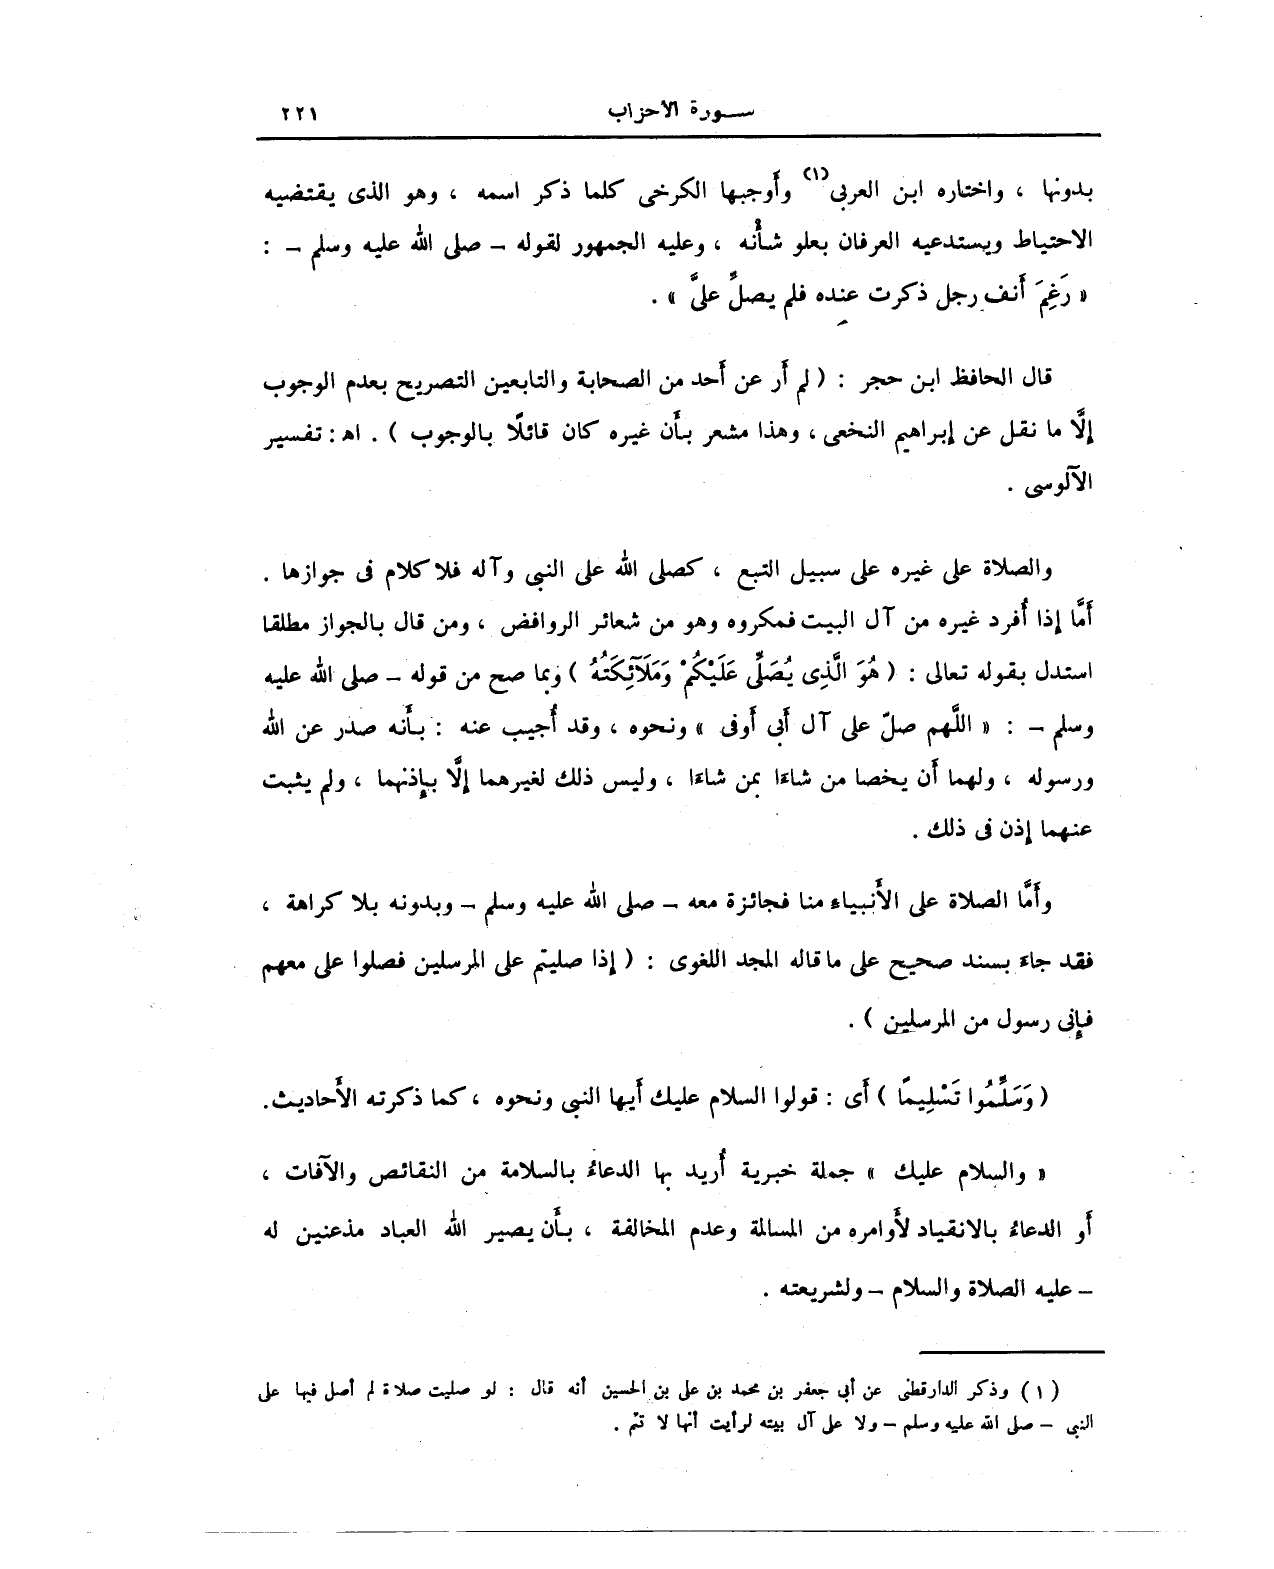 سورة الأحزاب ٢٢١
بدونها ، واختاره ابن العربى(١) وأوجبها الكرخى كلما ذكر اسمه ، وهو الذى يقتضيه
الاحتياط ويستدعيه العرفان بعلو شأنه ، وعليه الجمهور لقوله – صلى الله عليه وسلم – :
« رَغِمَ أنف رجل ذكرت عنده فلم يصلِّ علىَّ » .
قال الحافظ ابن حجر : ( لم أر عن أحد من الصحابة والتابعين التصريح بعدم الوجوب
إلَّا ما نقل عن إبراهيم النخعى ، وهذا مشعر بأن غيره كان قائلًا بالوجوب ) . اهـ : تفسير
الآلوسى .
والصلاة على غيره على سبيل التبع ، كصلى الله على النبى وآله فلا كلام فى جوازها .
أمَّا إذا أُفرد غيره من آل البيت فمكروه وهو من شعائر الروافض ، ومن قال بالجواز مطلقا
استدل بقوله تعالى : ( هُوَ الَّذِى يُصَلِّى عَلَيْكُمْ وَمَلَآئِكَتُهُ ) وبما صح من قوله – صلى الله عليه
وسلم – : « اللَّهم صلّ على آل أبى أوفى » ونحوه ، وقد أُجيب عنه : بأنه صدر عن الله
ورسوله ، ولهما أن يخصا من شاءَا بمن شاءَا ، وليس ذلك لغيرهما إلَّا بإذنهما ، ولم يثبت
عنهما إذن فى ذلك .
وأمَّا الصلاة على الأنبياء منا فجائزة معه – صلى الله عليه وسلم – وبدونه بلا كراهة ،
فقد جاءَ بسند صحيح على ما قاله المجد اللغوى : ( إذا صليتم على المرسلين فصلوا على معهم
فإنى رسول من المرسلين ) .
( وَسَلِّمُوا تَسْلِيمًا ) أى : قولوا السلام عليك أيها النبى ونحوه ، كما ذكرته الأحاديث.
« والسلام عليك » جملة خبرية أُريد بها الدعاءُ بالسلامة من النقائص والآفات ،
أو الدعاءُ بالانقياد لأوامره من المسالمة وعدم المخالفة ، بأن يصير الله العباد مذعنين له
– عليه الصلاة والسلام – ولشريعته .
( ١ ) وذكر الدارقطنى عن أبى جعفر بن محمد بن على بن الحسين أنه قال : لو صليت صلاة لم أصل فيها على
النبى – صلى الله عليه وسلم – ولا على آل بيته لرأيت أنها لا تتم .